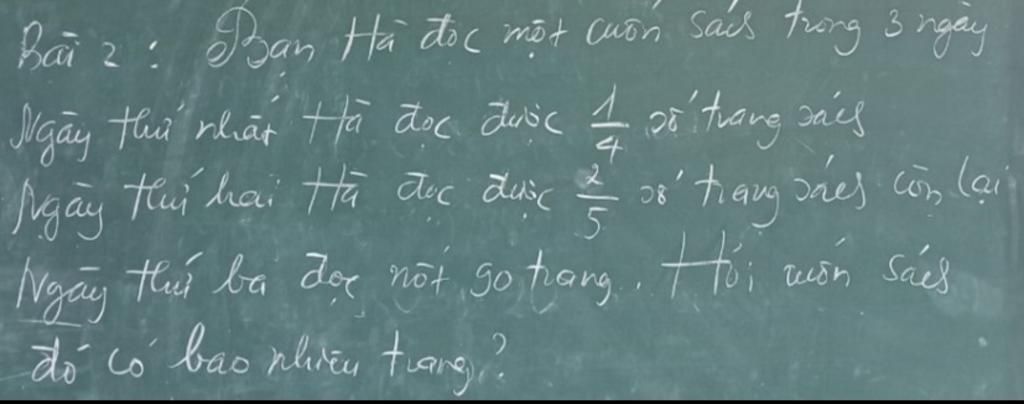 Bài 2 : Bạn Hà đọc một cuốn sách trong 3 ngày
Ngày thứ nhất Hà đọc được 1/4 số trang sách
Ngày thứ hai Hà đọc được 2/5 số trang sách còn lại
Ngày thứ ba đọc nốt 90 trang. Hỏi cuốn sách
đó có bao nhiêu trang?